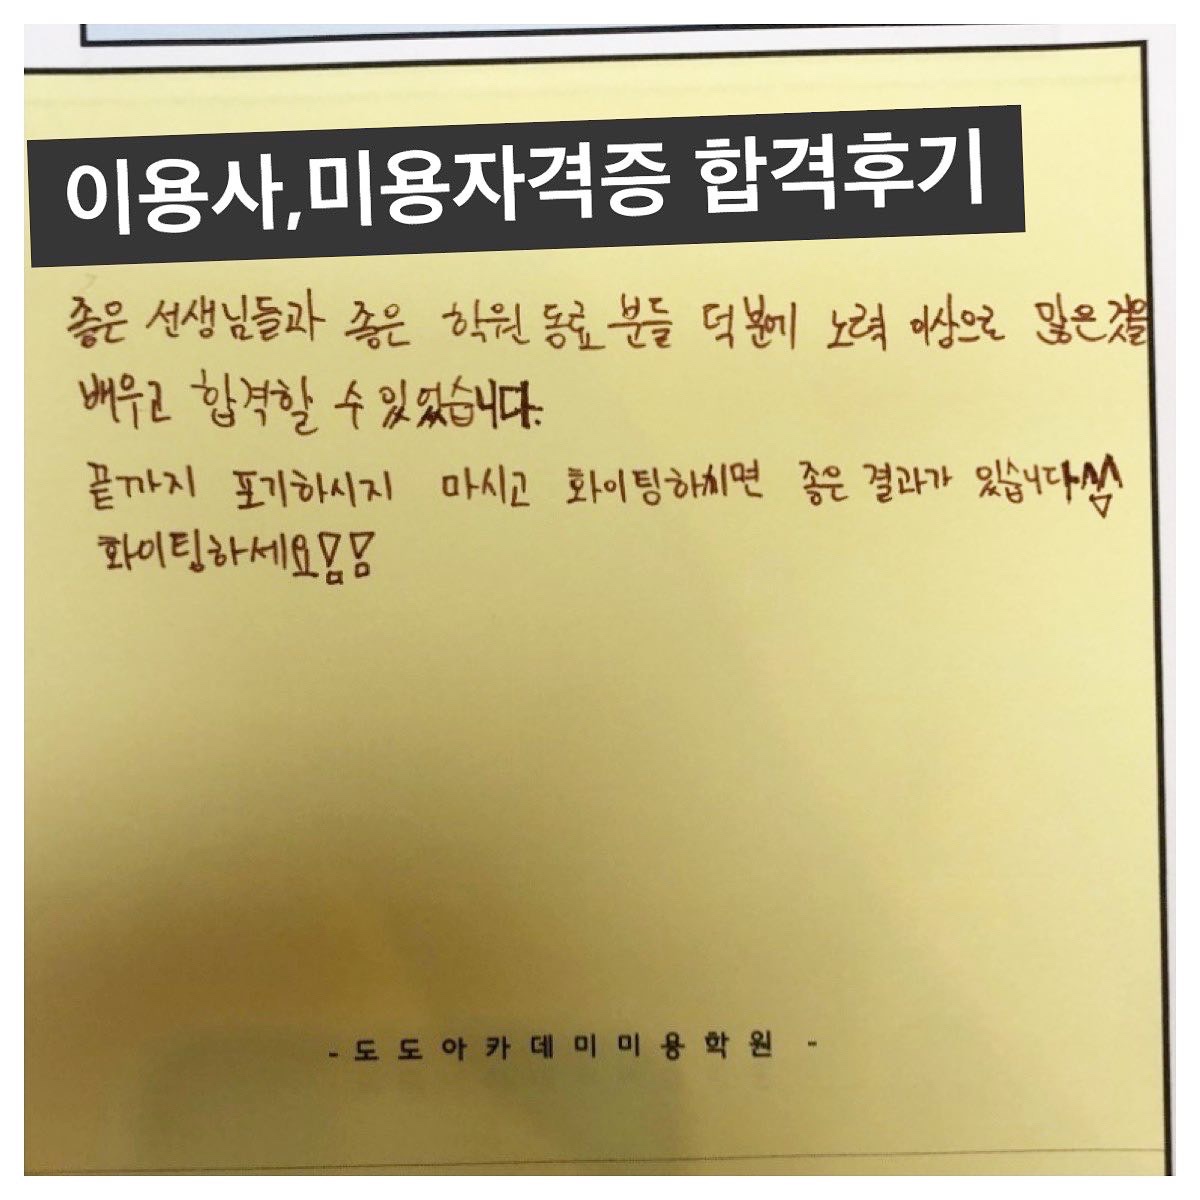 이용사,미용자격증 합격후기
좋은 선생님들과 좋은 학원 동료 분들 덕분에 노력 이상으로 많은 것을
배우고 합격할 수 있었습니다.
끝까지 포기하시지 마시고 화이팅하시면 좋은 결과가 있습니다^^
화이팅하세요!!
- 도 도 아 카 데 미 미 용 학 원 -